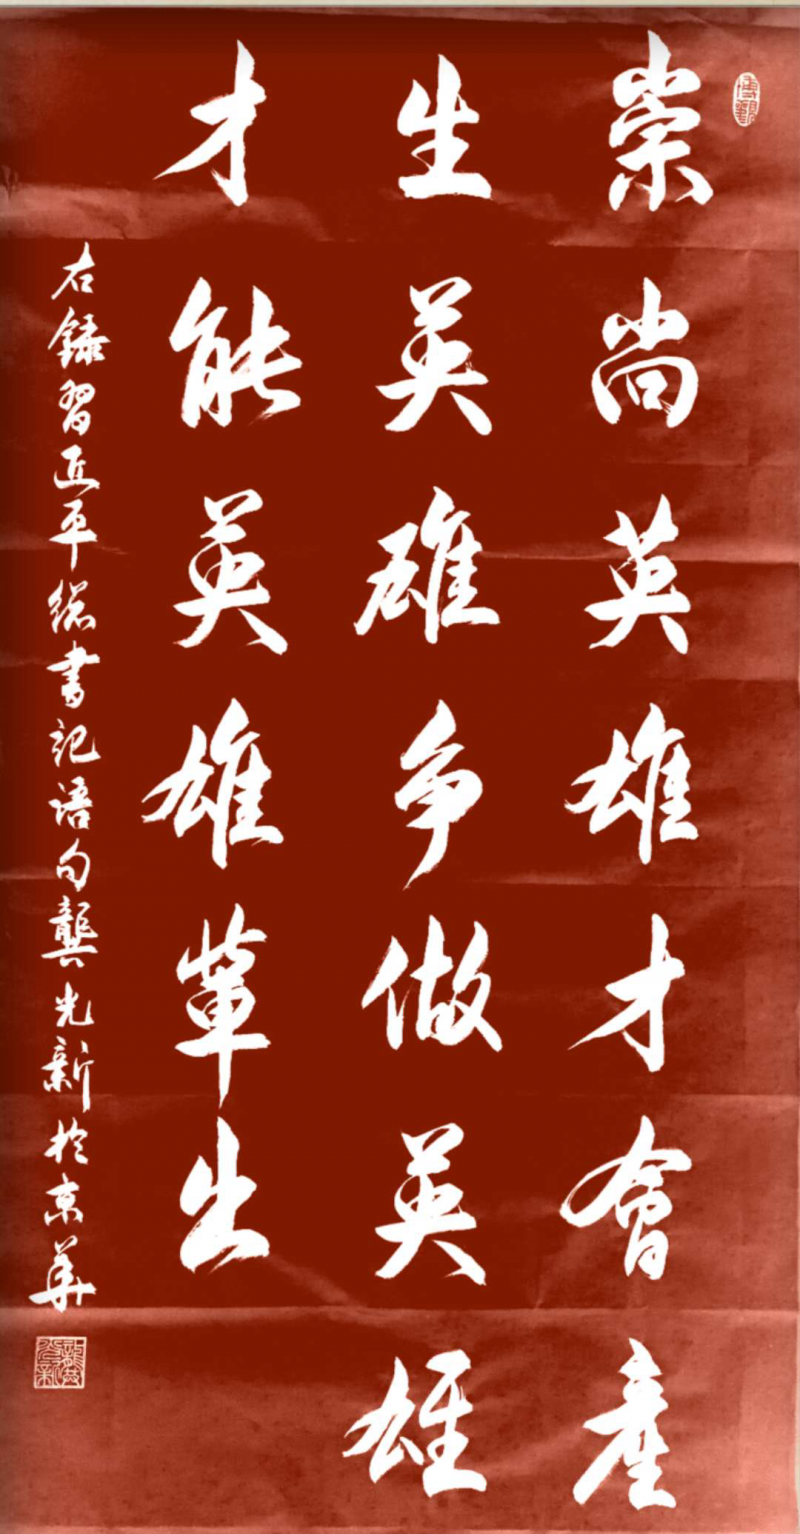 崇尚英雄才會產
生英雄争做英雄
才能英雄輩出
右録習近平総書記語句龔光新於京華
博觀
龔光新